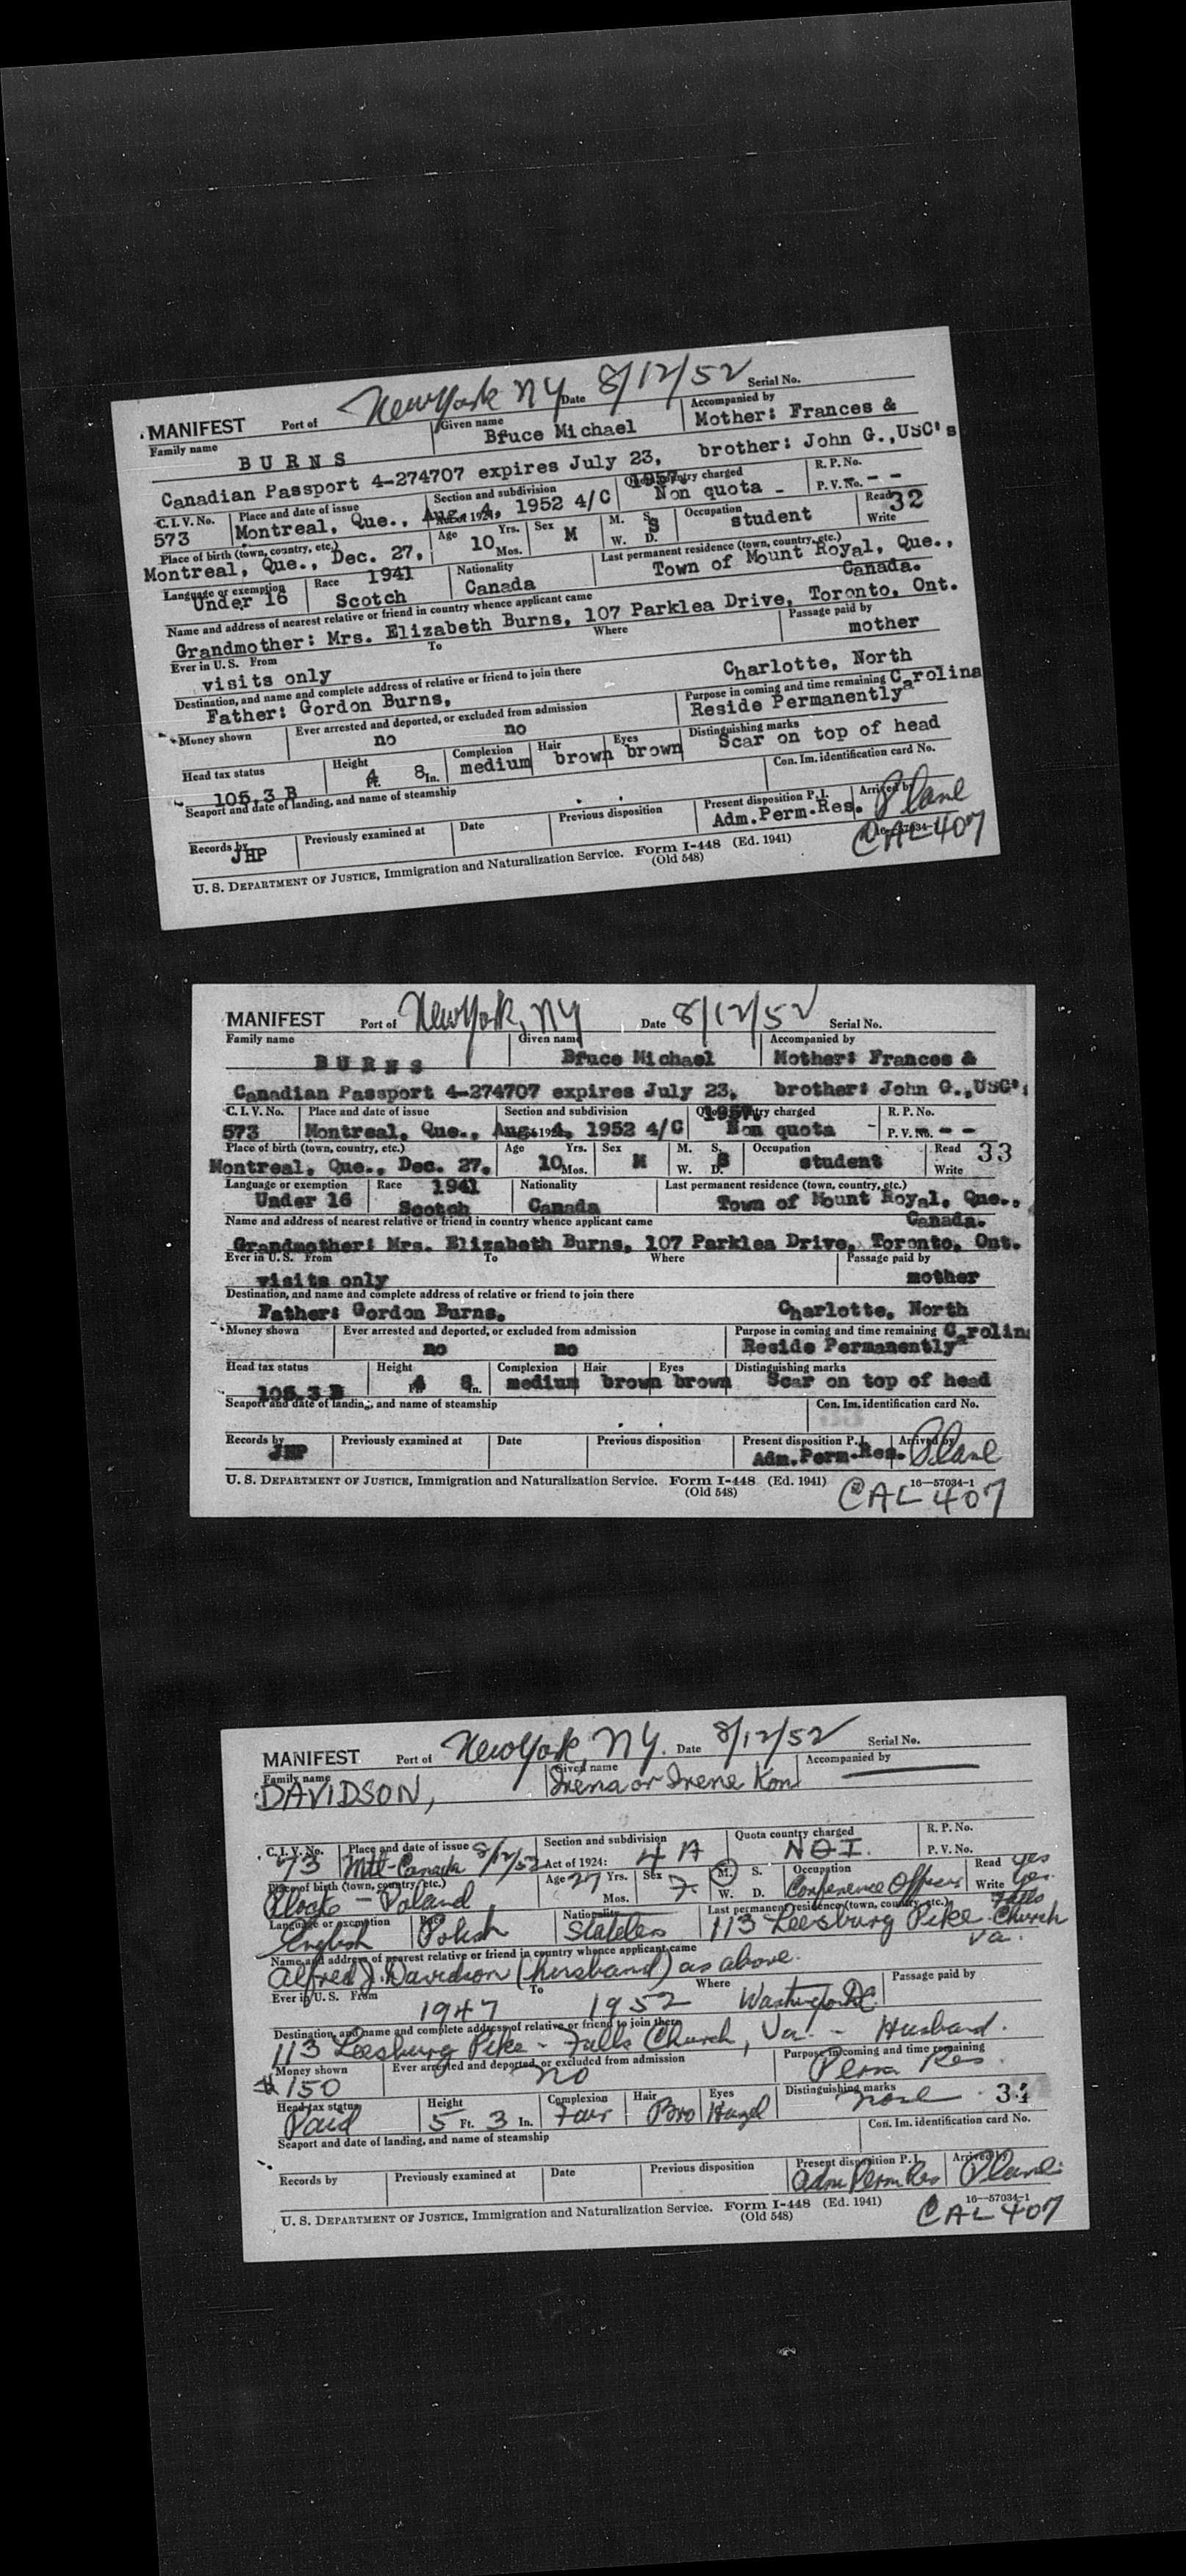 MANIFEST Port of New York NY Date 8/12/52 Serial No.
Family name Given name Accompanied by
BURNS Bruce Michael Mother: Frances &
Canadian Passport 4-274707 expires July 23, brother: John G.,USC's
1957.
C. I. V. No. Place and date of issue Section and subdivision Quota country charged R. P. No.
573 Montreal, Que., Aug. 4, 1952 4/C Non quota - P. V. No. - -
Place of birth (town, country, etc.) Age Yrs. Sex M. S. Occupation Read 32
Montreal, Que., Dec. 27, 10 Mos. M W. D. S student Write
1941
Language or exemption Race Nationality Last permanent residence (town, country, etc.)
Under 16 Scotch Canada Town of Mount Royal, Que.,
Canada.
Name and address of nearest relative or friend in country whence applicant came
Grandmother: Mrs. Elizabeth Burns, 107 Parklea Drive, Toronto, Ont.
Ever in U. S. From To Where Passage paid by
visits only mother
Destination, and name and complete address of relative or friend to join there
Father: Gordon Burns, Charlotte, North
Carolina
Money shown Ever arrested and deported, or excluded from admission Purpose in coming and time remaining
no no Reside Permanently
Head tax status Height Complexion Hair Eyes Distinguishing marks
105.3 B 4 Ft. 8 In. medium brown brown Scar on top of head
Seaport and date of landing, and name of steamship Con. Im. identification card No.
Records by Previously examined at Date Previous disposition Present disposition P. I. Arrived by
JHP Adm.Perm.Res.
U. S. DEPARTMENT OF JUSTICE, Immigration and Naturalization Service. Form I-448 (Ed. 1941) 16-57034-1
(Old 548) CAL 407
MANIFEST Port of New York, NY Date 8/12/52 Serial No.
Family name Given name Accompanied by
BURNS Bruce Michael Mother: Frances &
Canadian Passport 4-274707 expires July 23, brother: John G.,USC's
1957.
C. I. V. No. Place and date of issue Section and subdivision Quota country charged R. P. No.
573 Montreal, Que., Aug. 4, 1952 4/C Non quota - P. V. No. - -
Place of birth (town, country, etc.) Age Yrs. Sex M. S. Occupation Read 33
Montreal, Que., Dec. 27, 10 Mos. M W. D. S student Write
1941
Language or exemption Race Nationality Last permanent residence (town, country, etc.)
Under 16 Scotch Canada Town of Mount Royal, Que.,
Canada.
Name and address of nearest relative or friend in country whence applicant came
Grandmother: Mrs. Elizabeth Burns, 107 Parklea Drive, Toronto, Ont.
Ever in U. S. From To Where Passage paid by
visits only mother
Destination, and name and complete address of relative or friend to join there
Father: Gordon Burns. Charlotte, North
Carolin
Money shown Ever arrested and deported, or excluded from admission Purpose in coming and time remaining
no no Reside Permanently
Head tax status Height Complexion Hair Eyes Distinguishing marks
105.3 B 4 Ft. 8 In. medium brown brown Scar on top of head
Seaport and date of landing, and name of steamship Con. Im. identification card No.
Records by Previously examined at Date Previous disposition Present disposition P. I. Arrived by
JHP Adm.Perm.Res.
U. S. DEPARTMENT OF JUSTICE, Immigration and Naturalization Service. Form I-448 (Ed. 1941) 16—57034-1
(Old 548) CAL 407
MANIFEST Port of New York, NY. Date 8/12/52 Serial No.
Family name Given name Accompanied by
DAVIDSON, Irena or Irene Kon
C. I. V. No. Place and date of issue Section and subdivision Quota country charged R. P. No.
73 Mtl-Canada 8/12/52 Act of 1924: 4 A NQI. P. V. No.
Place of birth (town, country, etc.) Age 27 Yrs. Sex M. S. Occupation Read yes
Plock - Poland Mos. F. W. D. Conference Officer Write yes
Language or exemption Race Nationality Last permanent residence (town, country, etc.) Falls
English Polish Stateless 113 Leesburg Pike Church
Va.
Name and address of nearest relative or friend in country whence applicant came
Alfred J. Davidson (husband) as above.
Ever in U. S. From To Where Passage paid by
1947 1952 Washington DC
Destination, and name and complete address of relative or friend to join there
113 Leesburg Pike - Falls Church, Va. - Husband.
Money shown Ever arrested and deported, or excluded from admission Purpose in coming and time remaining
$150 no Perm Res.
Head tax status Height Complexion Hair Eyes Distinguishing marks 34
Paid 5 Ft. 3 In. Fair Bro Hazel none
Seaport and date of landing, and name of steamship Con. Im. identification card No.
Records by Previously examined at Date Previous disposition Present disposition P. I. Arrived by
Adm Perm Res
U. S. DEPARTMENT OF JUSTICE, Immigration and Naturalization Service. Form I-448 (Ed. 1941) 16—57034-1
(Old 548) CAL 407